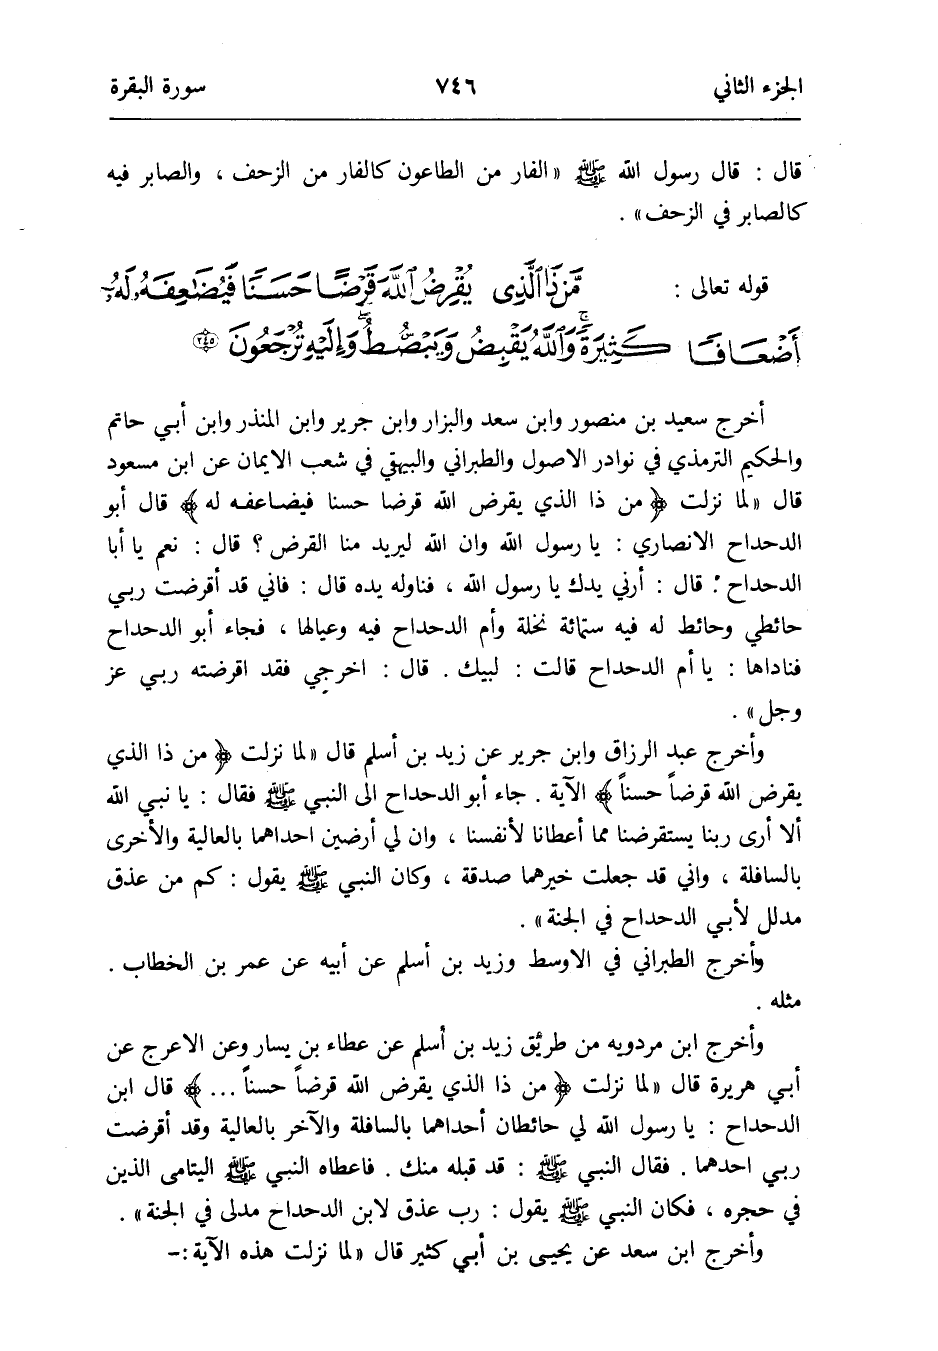 الجزء الثاني ٧٤٦ سورة البقرة
قال : قال رسول الله ﷺ «الفار من الطاعون كالفار من الزحف ، والصابر فيه
كالصابر في الزحف» .
قوله تعالى : مَّن ذَا ٱلَّذِى يُقْرِضُ ٱللَّهَ قَرْضًا حَسَنًا فَيُضَـٰعِفَهُۥ لَهُۥٓ
أَضْعَافًا كَثِيرَةً ۚ وَٱللَّهُ يَقْبِضُ وَيَبْصُۜطُ وَإِلَيْهِ تُرْجَعُونَ ﴿٢٤٥﴾
أخرج سعيد بن منصور وابن سعد والبزار وابن جرير وابن المنذر وابن أبي حاتم
والحكيم الترمذي في نوادر الاصول والطبراني والبيهقي في شعب الايمان عن ابن مسعود
قال «لما نزلت ﴿ من ذا الذي يقرض الله قرضا حسنا فيضاعفه له ﴾ قال أبو
الدحداح الانصاري : يا رسول الله وان الله ليريد منا القرض ؟ قال : نعم يا أبا
الدحداح ؛ قال : أرني يدك يا رسول الله ، فناوله يده قال : فاني قد أقرضت ربي
حائطي وحائط له فيه ستمائة نخلة وأم الدحداح فيه وعيالها ، فجاء أبو الدحداح
فناداها : يا أم الدحداح قالت : لبيك . قال : اخرجي فقد اقرضته ربي عز
وجل» .
وأخرج عبد الرزاق وابن جرير عن زيد بن أسلم قال «لما نزلت ﴿ من ذا الذي
يقرض الله قرضاً حسناً ﴾ الآية . جاء أبو الدحداح الى النبي ﷺ فقال : يا نبي الله
ألا أرى ربنا يستقرضنا مما أعطانا لأنفسنا ، وان لي أرضين احداهما بالعالية والأخرى
بالسافلة ، واني قد جعلت خيرهما صدقة ، وكان النبي ﷺ يقول : كم من عذق
مدلل لأبي الدحداح في الجنة» .
وأخرج الطبراني في الاوسط وزيد بن أسلم عن أبيه عن عمر بن الخطاب .
مثله .
وأخرج ابن مردويه من طريق زيد بن أسلم عن عطاء بن يسار وعن الاعرج عن
أبي هريرة قال «لما نزلت ﴿ من ذا الذي يقرض الله قرضاً حسناً ... ﴾ قال ابن
الدحداح : يا رسول الله لي حائطان أحداهما بالسافلة والآخر بالعالية وقد أقرضت
ربي احدهما . فقال النبي ﷺ : قد قبله منك . فاعطاه النبي ﷺ اليتامى الذين
في حجره ، فكان النبي ﷺ يقول : رب عذق لابن الدحداح مدلى في الجنة» .
وأخرج ابن سعد عن يحيى بن أبي كثير قال «لما نزلت هذه الآية :-